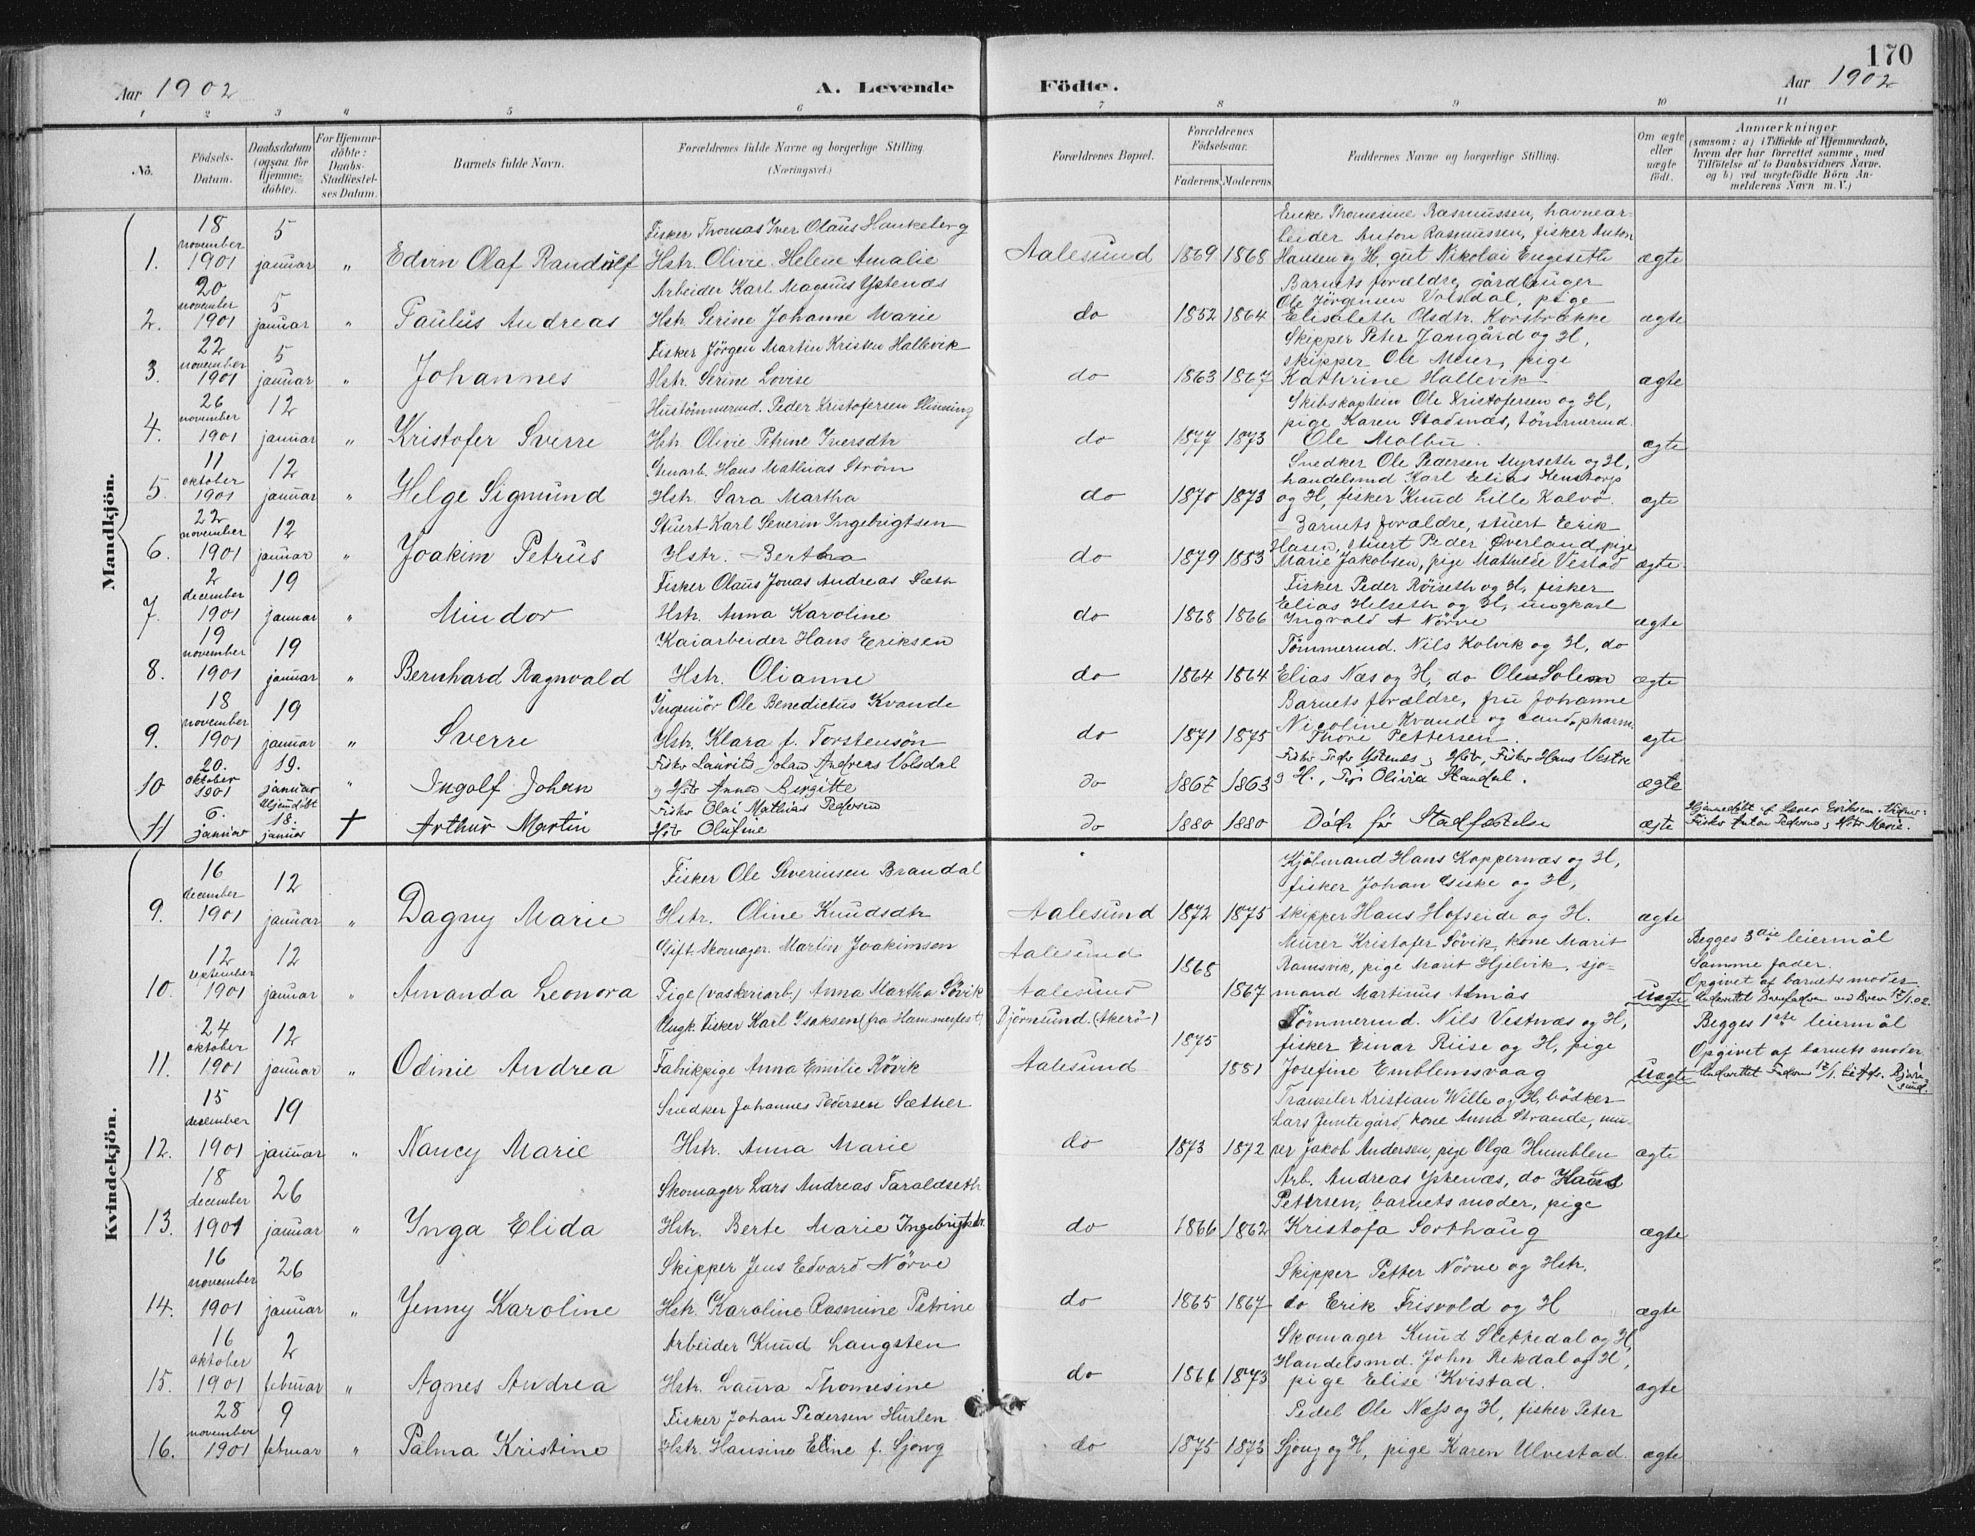 170
Aar 1902
A. Levende
Födte.
Aar 1902
1 2 3 4 5 6 7 8 9 10 11
No.
Födsels-Datum.
Daabsdatum (ogsaa for hjemmedöbte).
For Hjemmedöbte: Daabs-Stadfæstelses Datum.
Barnets fulde Navn.
Forældrenes fulde Navne og borgerlige Stilling (Næringsvei.)
Forældrenes Bopæl.
Forældrenes Födselsaar.
Faderens. Moderens.
Faddernes Navne og borgerlige Stilling.
Om ægte eller uægte födt.
Anmærkninger
(saasom: a) i Tilfælde af Hjemmedaab, hvem der har forrettet samme, med Tilföielse af to Daabsvidners Navne, og b) ved uægtefödte Börn Anmelderens Navn m. V.)
Mandkjön.
1. 18 november 1901 5 januar " Edvin Olaf Randulf
Fisker Thomas Iver Olaus Hankeberg
Hstr. Olivie Helene Amalie
Aalesund 1869 1868
Enke Thomesine Rasmussen, havnear-
beider Anton Rasmussen, fisker Anton
Hansen og H, gut Nikolai Engeseth ægte
2. 20 november 1901 5 januar " Paulus Andreas
Arbeider Karl Magnus Ystenæs
Hstr. Serine Johanne Marie
do 1852 1864
Barnets forældre, gårdbruger
Ole Jörgensen Volsdal, pige
Elisabeth Olsdtr. Korsbrække ægte
3. 22 november 1901 5 januar " Johannes
Fisker Jörgen Martin Kristen Hallevik
Hstr. Serine Lovise
do 1863 1867
Skipper Peter Jangård og H,
skipper Ole Meier, pige
Kathrine Hallevik ægte
4. 26 november 1901 12 januar " Kristofer Sverre
Hustömmermd. Peder Kristofersen Slinning
Hstr. Olivie Petrine Iversdtr
do 1877 1873
Skibskaptein Ole Kristofersen og H,
pige Karen Stadsnæs, tömmermd.
Ole Molbu. ægte
5. 11 oktober 1901 12 januar " Helge Sigmund
Hans Mathias Ström
Hstr. Sara Martha
do 1870 1873
Snedker Ole Pedersen Myrseth og H,
handelsmd Karl Elias
og H, fisker Knud Lille Kalvö ægte
6. 22 november 1901 12 januar " Joakim Petrus
Stuert Karl Severin Ingebrigtsen
Hstr. Bertha
do 1879 1883
Barnets forældre, stuert Eerik
Hasen, stuert Peder Överland, pige
Marie Jakobsen, pige Mathilde Vestad ægte
7. 2 december 1901 19 januar " Mindor
Fisker Olaus Jonas Andreas Sæth
Hstr. Anna Karoline
do 1868 1866
Fisker Peder Röiseth og H, fisker
Elias Helseth og H, ungkarl
Ingvald A Nörve ægte
8. 19 november 1901 19 januar " Bernhard Ragnvald
Kaiarbeider Hans Eriksen
Hstr. Olianne
do 1864 1864
Tömmermd. Nils Kolvik og H, do
Elias Næs og H, do Olen Solem ægte
9. 18 november 1901 19 januar " Sverre
Ingeniör Ole Benedictus Kvande
Hstr. Klara f. Torstensön
do 1871 1875
Barnets forældre, fru Johanne
Nicoline Kvande og cand. pharm.
Thore Pettersen. ægte
10 20. oktober 1901 19. januar " Ingolf Johan
Fisker Laurits Johan Andreas Volsdal
og Hstr Anna Birgitte
do 1867 1863
Ystenes, Hstr, Fisker Hans Vestre
og H., Pige Olivia Standal. ægte
11 6. januar Hjemdöbt 18. januar † Arthur Martin
Fisker Olai Mathias Pedersen
Hstr Olufine
do 1880 1880
Död för Stadfæstelse ægte
Hjemmedöbt af Eriksen.
Fisker Anton Pedersen, Hstr Marie.
Kvindekjön.
9. 16 december 1901 12 januar " Dagny Marie
Fisker Ole Severinsen Brandal
Hstr. Oline Knudsdtr
Aalesund 1872 1875
Kjöbmand Hans Koppernæs og H,
fisker Johan Giske og H,
skipper Hans Hofseide og H. ægte
10. 12 september 1901 12 januar " Amanda Leonora
Gift Skomager. Martin Joakimsen
Pige (vaskeriarb.) Anna Martha Sövik
Aalesund
Aalesund
1868 1867
Murer Kristofer Sövik, kone Marit
Ramsvik, pige Marit Hjelvik, sjö-
mand Martinus Almås uægte
Begges 3die leiermål
Samme fader.
Opgivet af barnets moder.
Underrettet Barnefaderen ved Brev 17/1.02.
11. 24 oktober 1901 12 januar " Odinie Andrea
Ungk. Fisker Karl Isaksen (fra Hammerfest)
Fabrikpige Anna Emilie Rövik
Björnsund. (Akerö)
Aalesund
1875 1881
Tömmermd. Nils Vestnæs og H,
fisker Einar Riise og H, pige
Josefine Emblemsvaag uægte
Begges 1ste leiermål
Opgivet af barnets moder
Underrettet Faderen 17/1. Björnsund.
12. 15 desember 1901 19 januar " Nancy Marie
Snedker Johannes Pedersen Sæther
Hstr. Anna Marie
do 1873 1872
Tranvirker Kristian Wille og H, bödker
Lars Jemtegård, kone Anna Strande, mu-
rer Jakob Andersen, pige Olga Humblen ægte
13. 18 december 1901 26 januar " Ynga Elida
Skomager Lars Andreas Taraldseth
Hstr. Berte Marie Ingebrigtsdtr.
do 1866 1862
Arb. Andreas Ystenæs, do Hans
Petersen, barnets moder, pige
Kristofa Sorthaug ægte
14. 16 november 1901 26 januar " Jenny Karoline
Skipper Jens Edvard Nörve
Hstr. Karoline Rasmine Petrine
do 1865 1867
Skipper Petter Nörve og Hstr.
do Erik Frisvold og H ægte
15. 16 oktober 1901 2 februar " Agnes Andrea
Arbeider Knud Langsten
Hstr. Laura Thomesine
do 1866 1873
Skomager Knud Slettedal og H,
Handelsmd. John Rekdal og H,
pige Elise Kvistad. ægte
16. 28 november 1901 9 februar " Palma Kristine
Fisker Johan Pedersen Hurlen
Hstr. Hansine Eline f. Sjong
do 1875 1873
Pedel Ole Næss og H, fisker Peter
Sjong og H, pige Karen Ulvestad. ægte